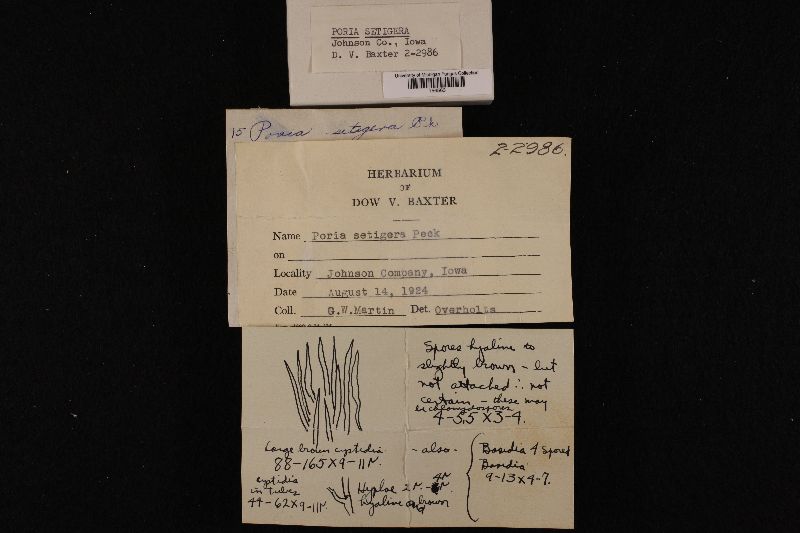 PORIA SETIGERA
Johnson Co., Iowa
D. V. Baxter 2-2986
University of Michigan Fungus Collection
15 Poria setigera Pk
2-2986.
HERBARIUM
OF
DOW V. BAXTER
Name Poria setigera Peck
on
Locality Johnson Company, Iowa
Date August 14, 1924
Coll. G.W.Martin Det. Overholts
Spores hyaline to
slightly brown - but
not attached ∴ not
certain - these may
4-5.5 X 3-4.
Large brown cystidia
88-165 X 9-11 μ.
cystidia
in tubes
44-62 X 9-11 μ.
- also -
Hyphae 2 μ. - 4 μ.
hyaline and brown
Basidia 4 spored
Basidia
9-13 X 4-7.